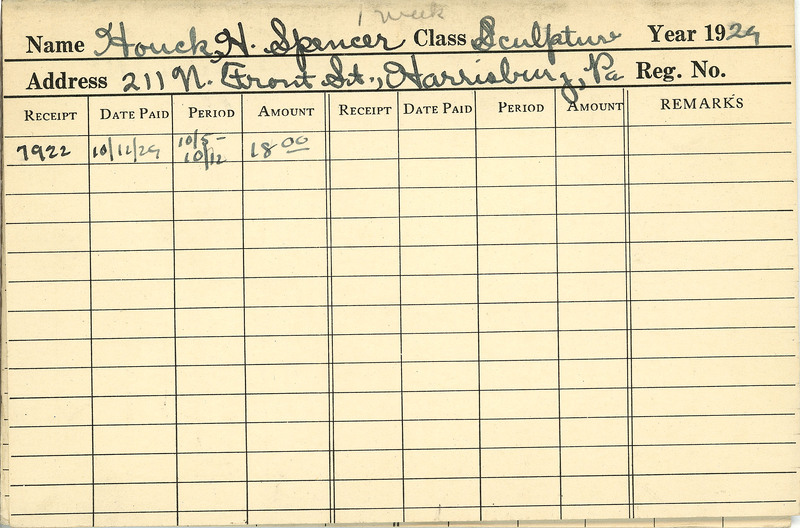 1 week
Name Houck, H. Spencer Class Sculpture Year 1929
Address 211 N. Front St., Harrisburg, Pa Reg. No.
RECEIPT DATE PAID PERIOD AMOUNT RECEIPT DATE PAID PERIOD AMOUNT REMARKS
7922 10/11/29 10/5- 10/12 18 00